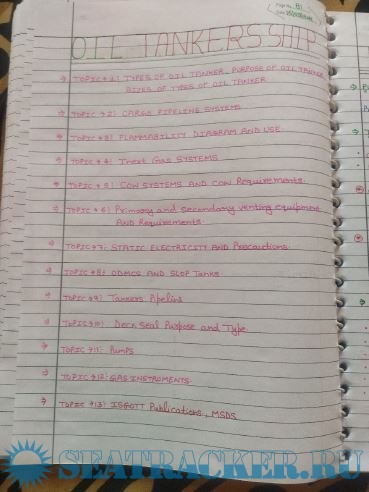 Page No. 81
OIL TANKERS SHIP
→ TOPIC → 1) TYPES OF OIL TANKER, PURPOSE OF OIL TANKER
SIZES OF TYPES OF OIL TANKER
→ TOPIC → 2) CARGO PIPELINE SYSTEMS
→ TOPIC → 3) FLAMMABILITY DIAGRAM AND USE
→ TOPIC → 4) Inert Gas SYSTEMS
→ TOPIC → 5) COW SYSTEMS AND COW Requirements.
→ TOPIC → 6) Primary and secondary venting equipment
AND Requirements.
→ TOPIC → 7: STATIC ELECTRICITY AND Precautions.
→ TOPIC → 8: ODMCS AND SLOP Tanks
→ TOPIC → 9) Tankers Pipeline
→ TOPIC → 10) Deck Seal Purpose and Type
→ TOPIC → 11: Pumps
→ TOPIC → 12: GAS INSTRUMENTS
→ TOPIC → 13) ISGOTT Publications, MSDS
SEATRACKER.RU